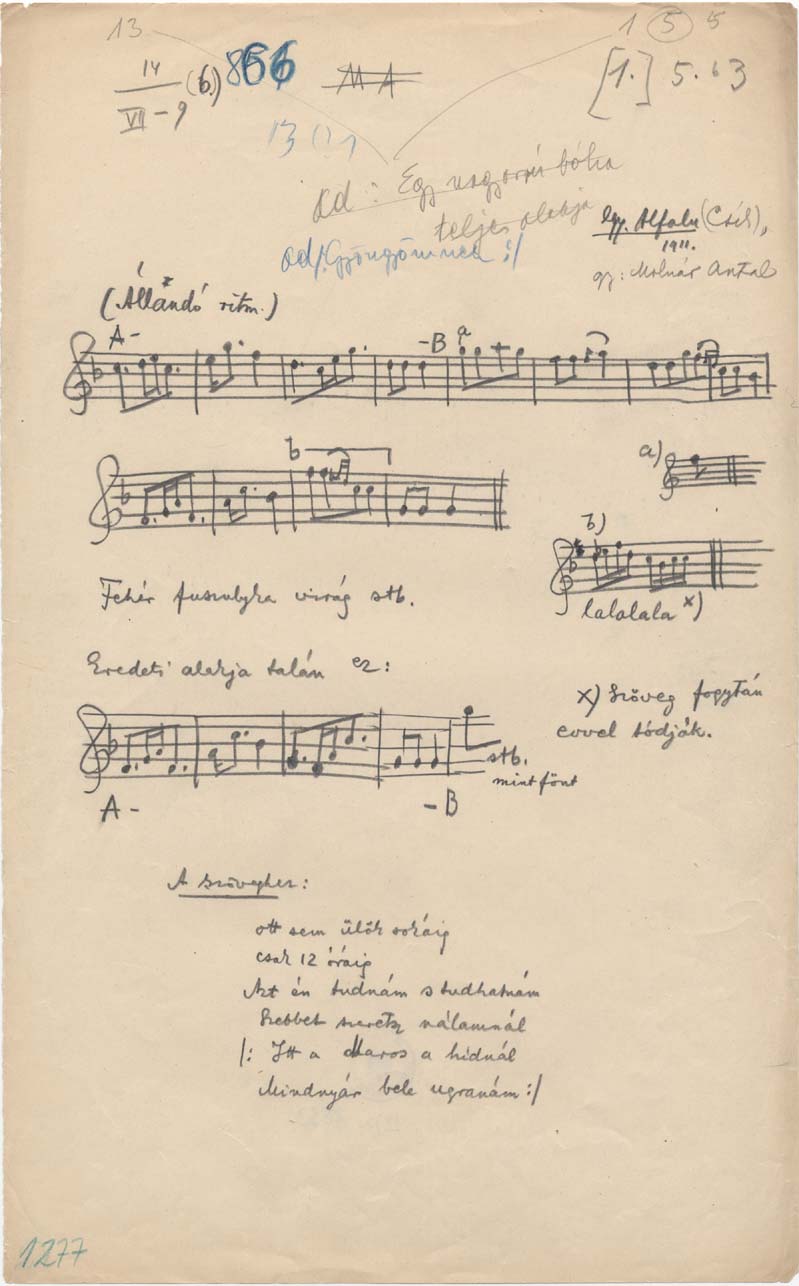 13
1 5 5
14
VII-9
(6.)
866
MA
[1.] 5. b3
13
ad: Egy magyar nóta
teljes alakja
ad/: Gyöngyöm :/
Gy. Alfalu (Csík),
1911.
gy: Molnár Antal
(Állandó ritm.)
A -
- B a
b
a)
b)
lalalala x)
Fehér fuszulyka virág stb.
Eredeti alakja talán ez:
x) Szöveg fogytán
evvel tódják.
stb.
mint fönt
A -
- B
A szöveghez:
ott sem ülök sokáig
csak 12 óráig
Azt én tudnám s tudhatnám
Szebbet szeretsz nálamnál
/: Itt a Maros a hidnál
Mindnyár bele ugranám :/
1277